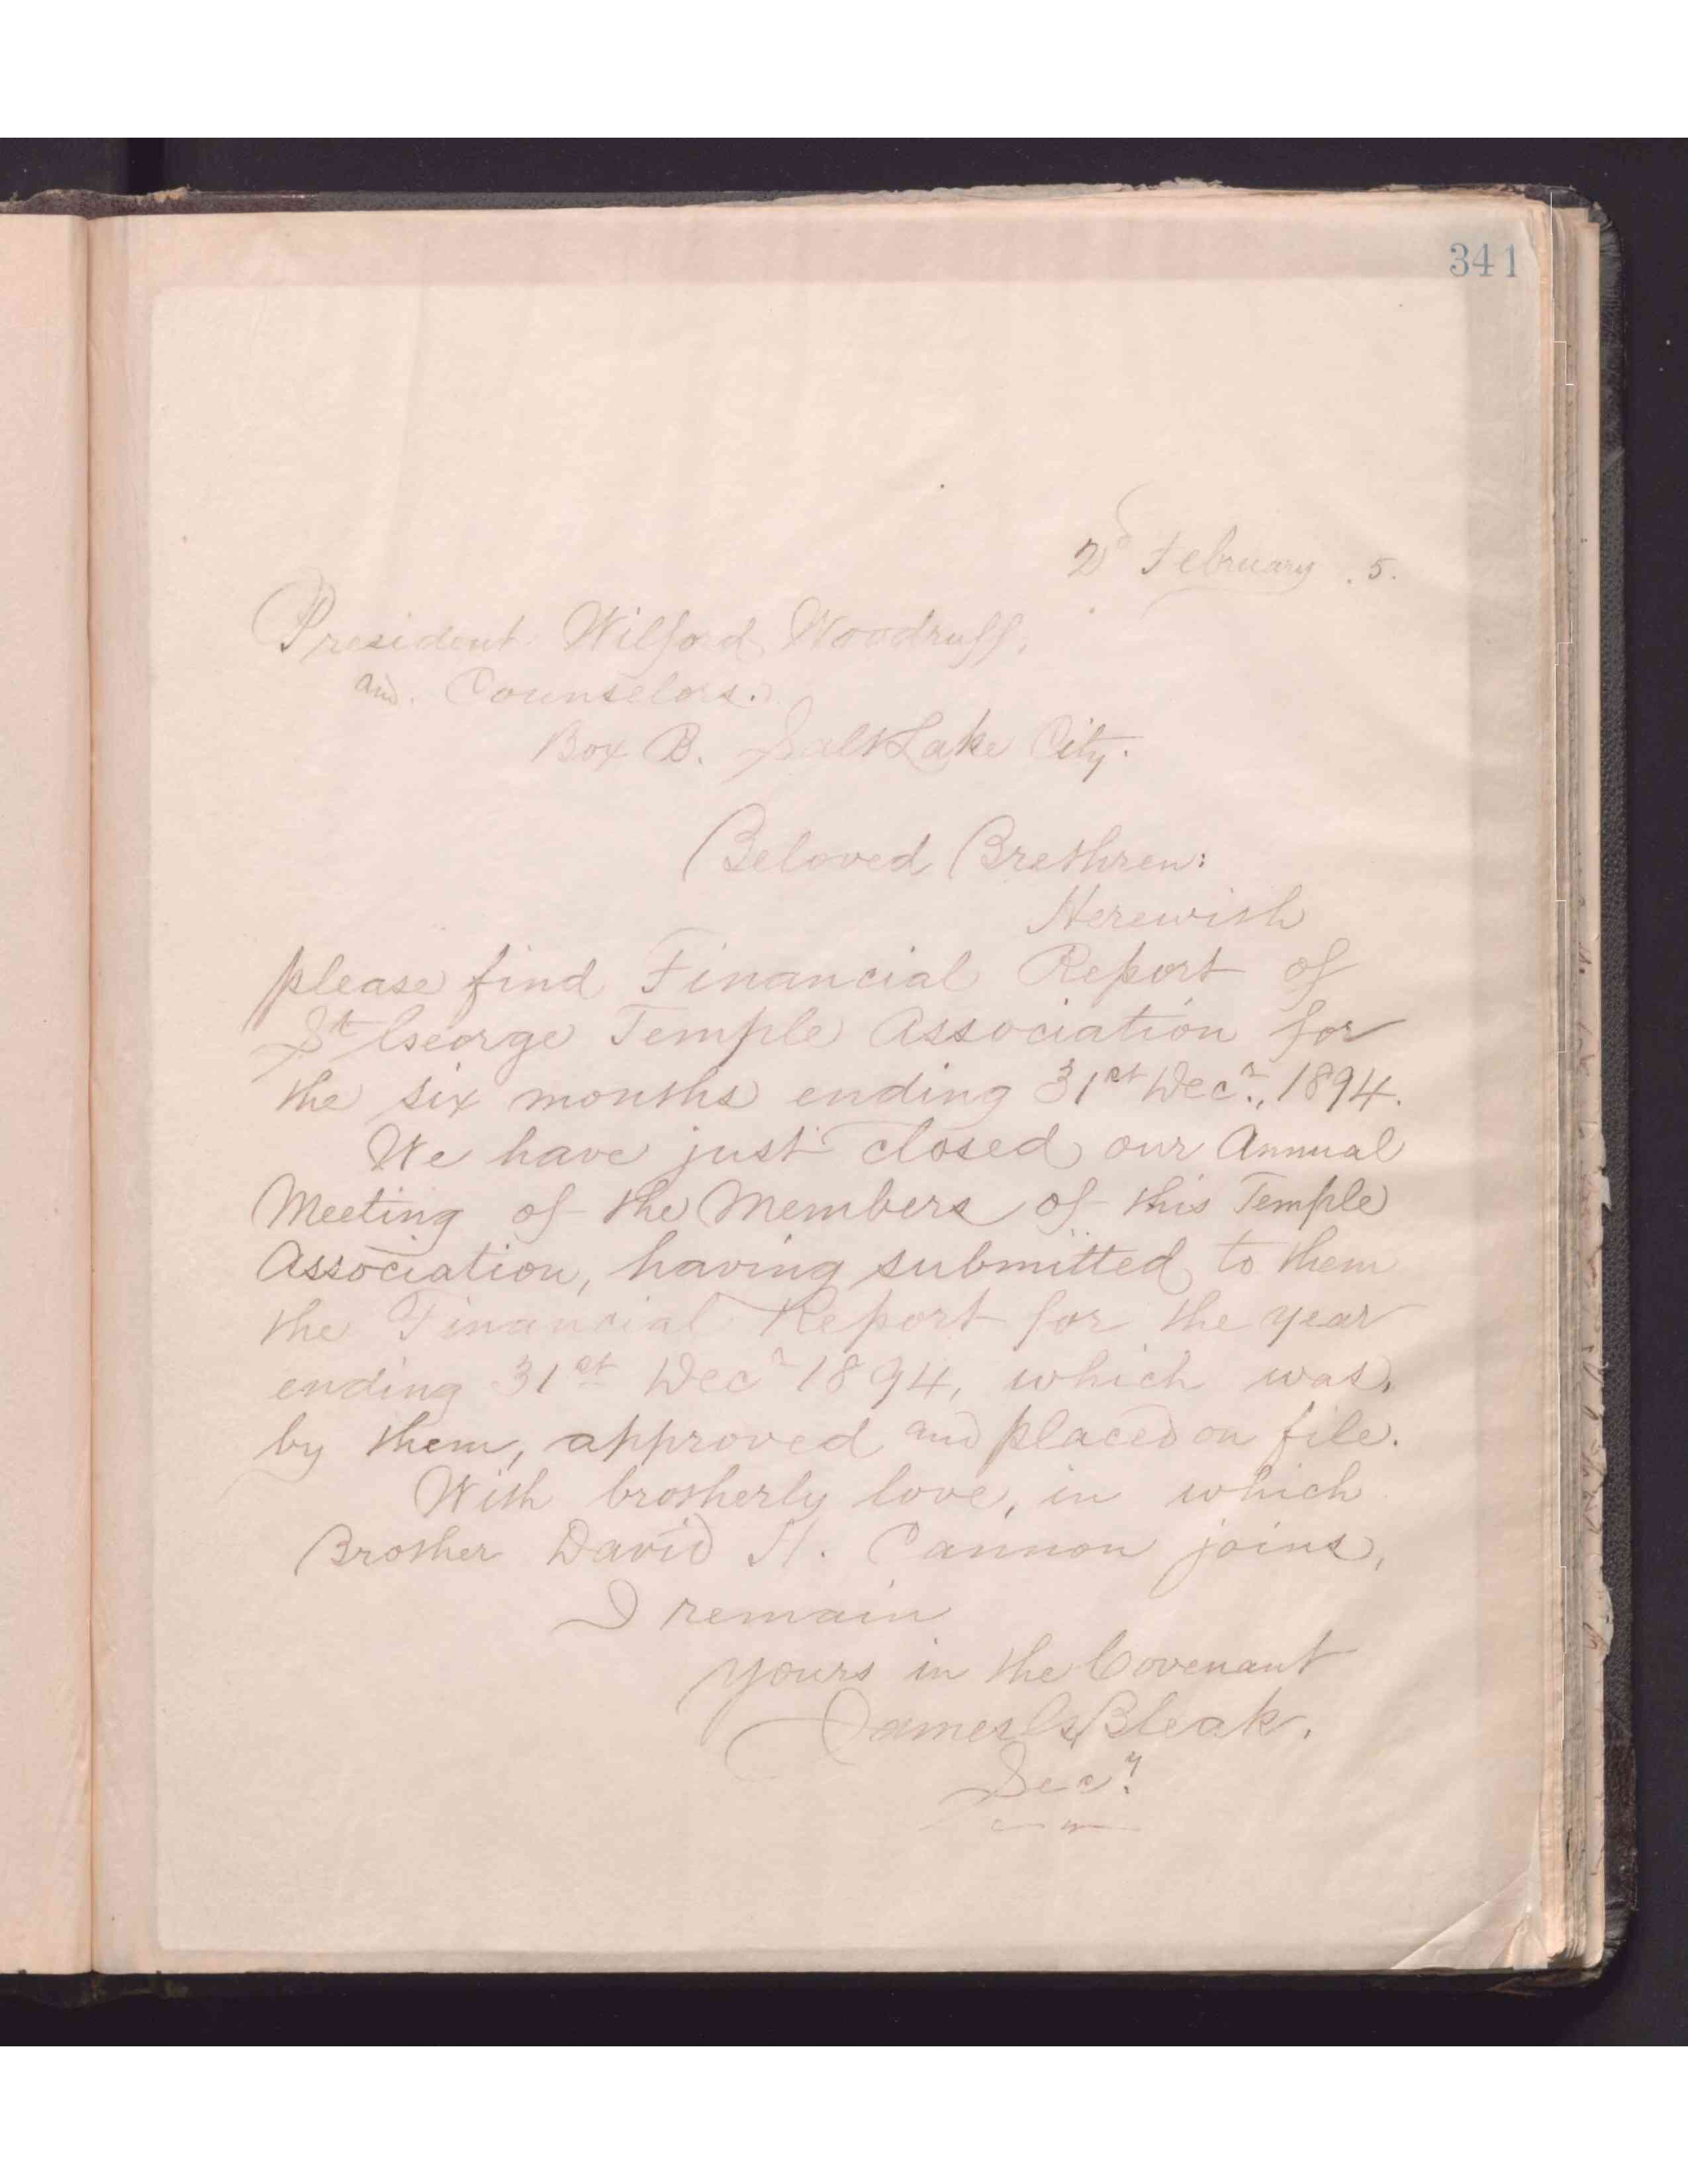 341
2d February .5.
President Wilford Woodruff,
and. Counselors.
Box B. Salt Lake City.
Beloved Brethren:
Herewith
please find Financial Report of
St George Temple Association for
the six months ending 31st Decr., 1894.
We have just closed our Annual
Meeting of the Members of this Temple
Association, having submitted to them
the Financial Report for the year
ending 31st Decr 1894, which was,
by them, approved and placed on file.
With brotherly love, in which
Brother David H. Cannon joins,
I remain
yours in the Covenant
James G. Bleak.
Secy.